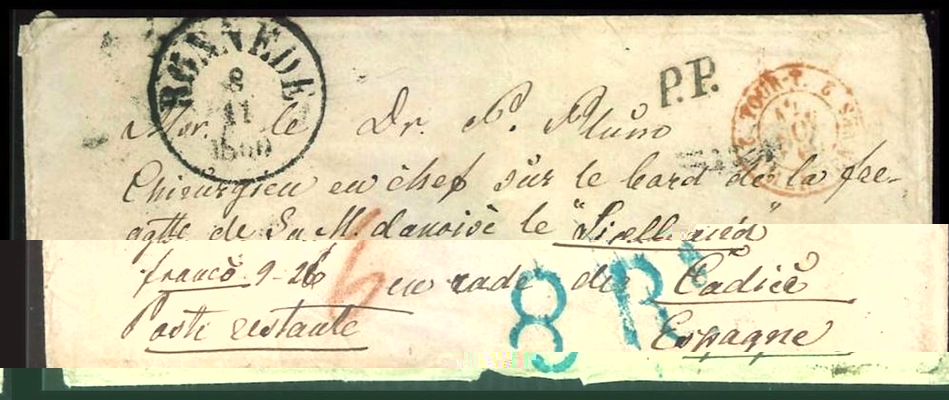 RØNNEDE
8
11
1860
P.P.
TOUR-T.
Mr. le Dr. P.
Chirurgien en chef sur le bord de la fre-
gatte de Sa M. danoise le "Siælland"
6
franco 9-26 en rade de Cadice
8 Rs
Poste restante Espagne